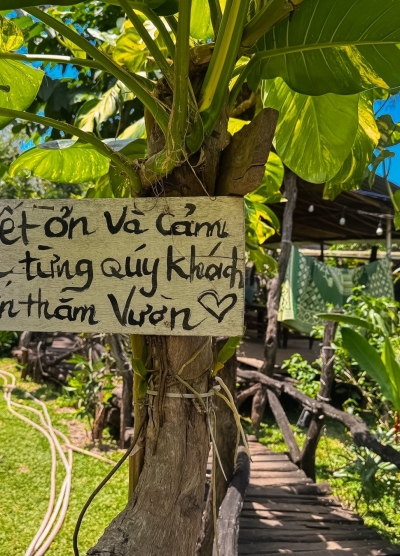 ết ơn Và Cảm
từng qúy khách
n thăm Vườn